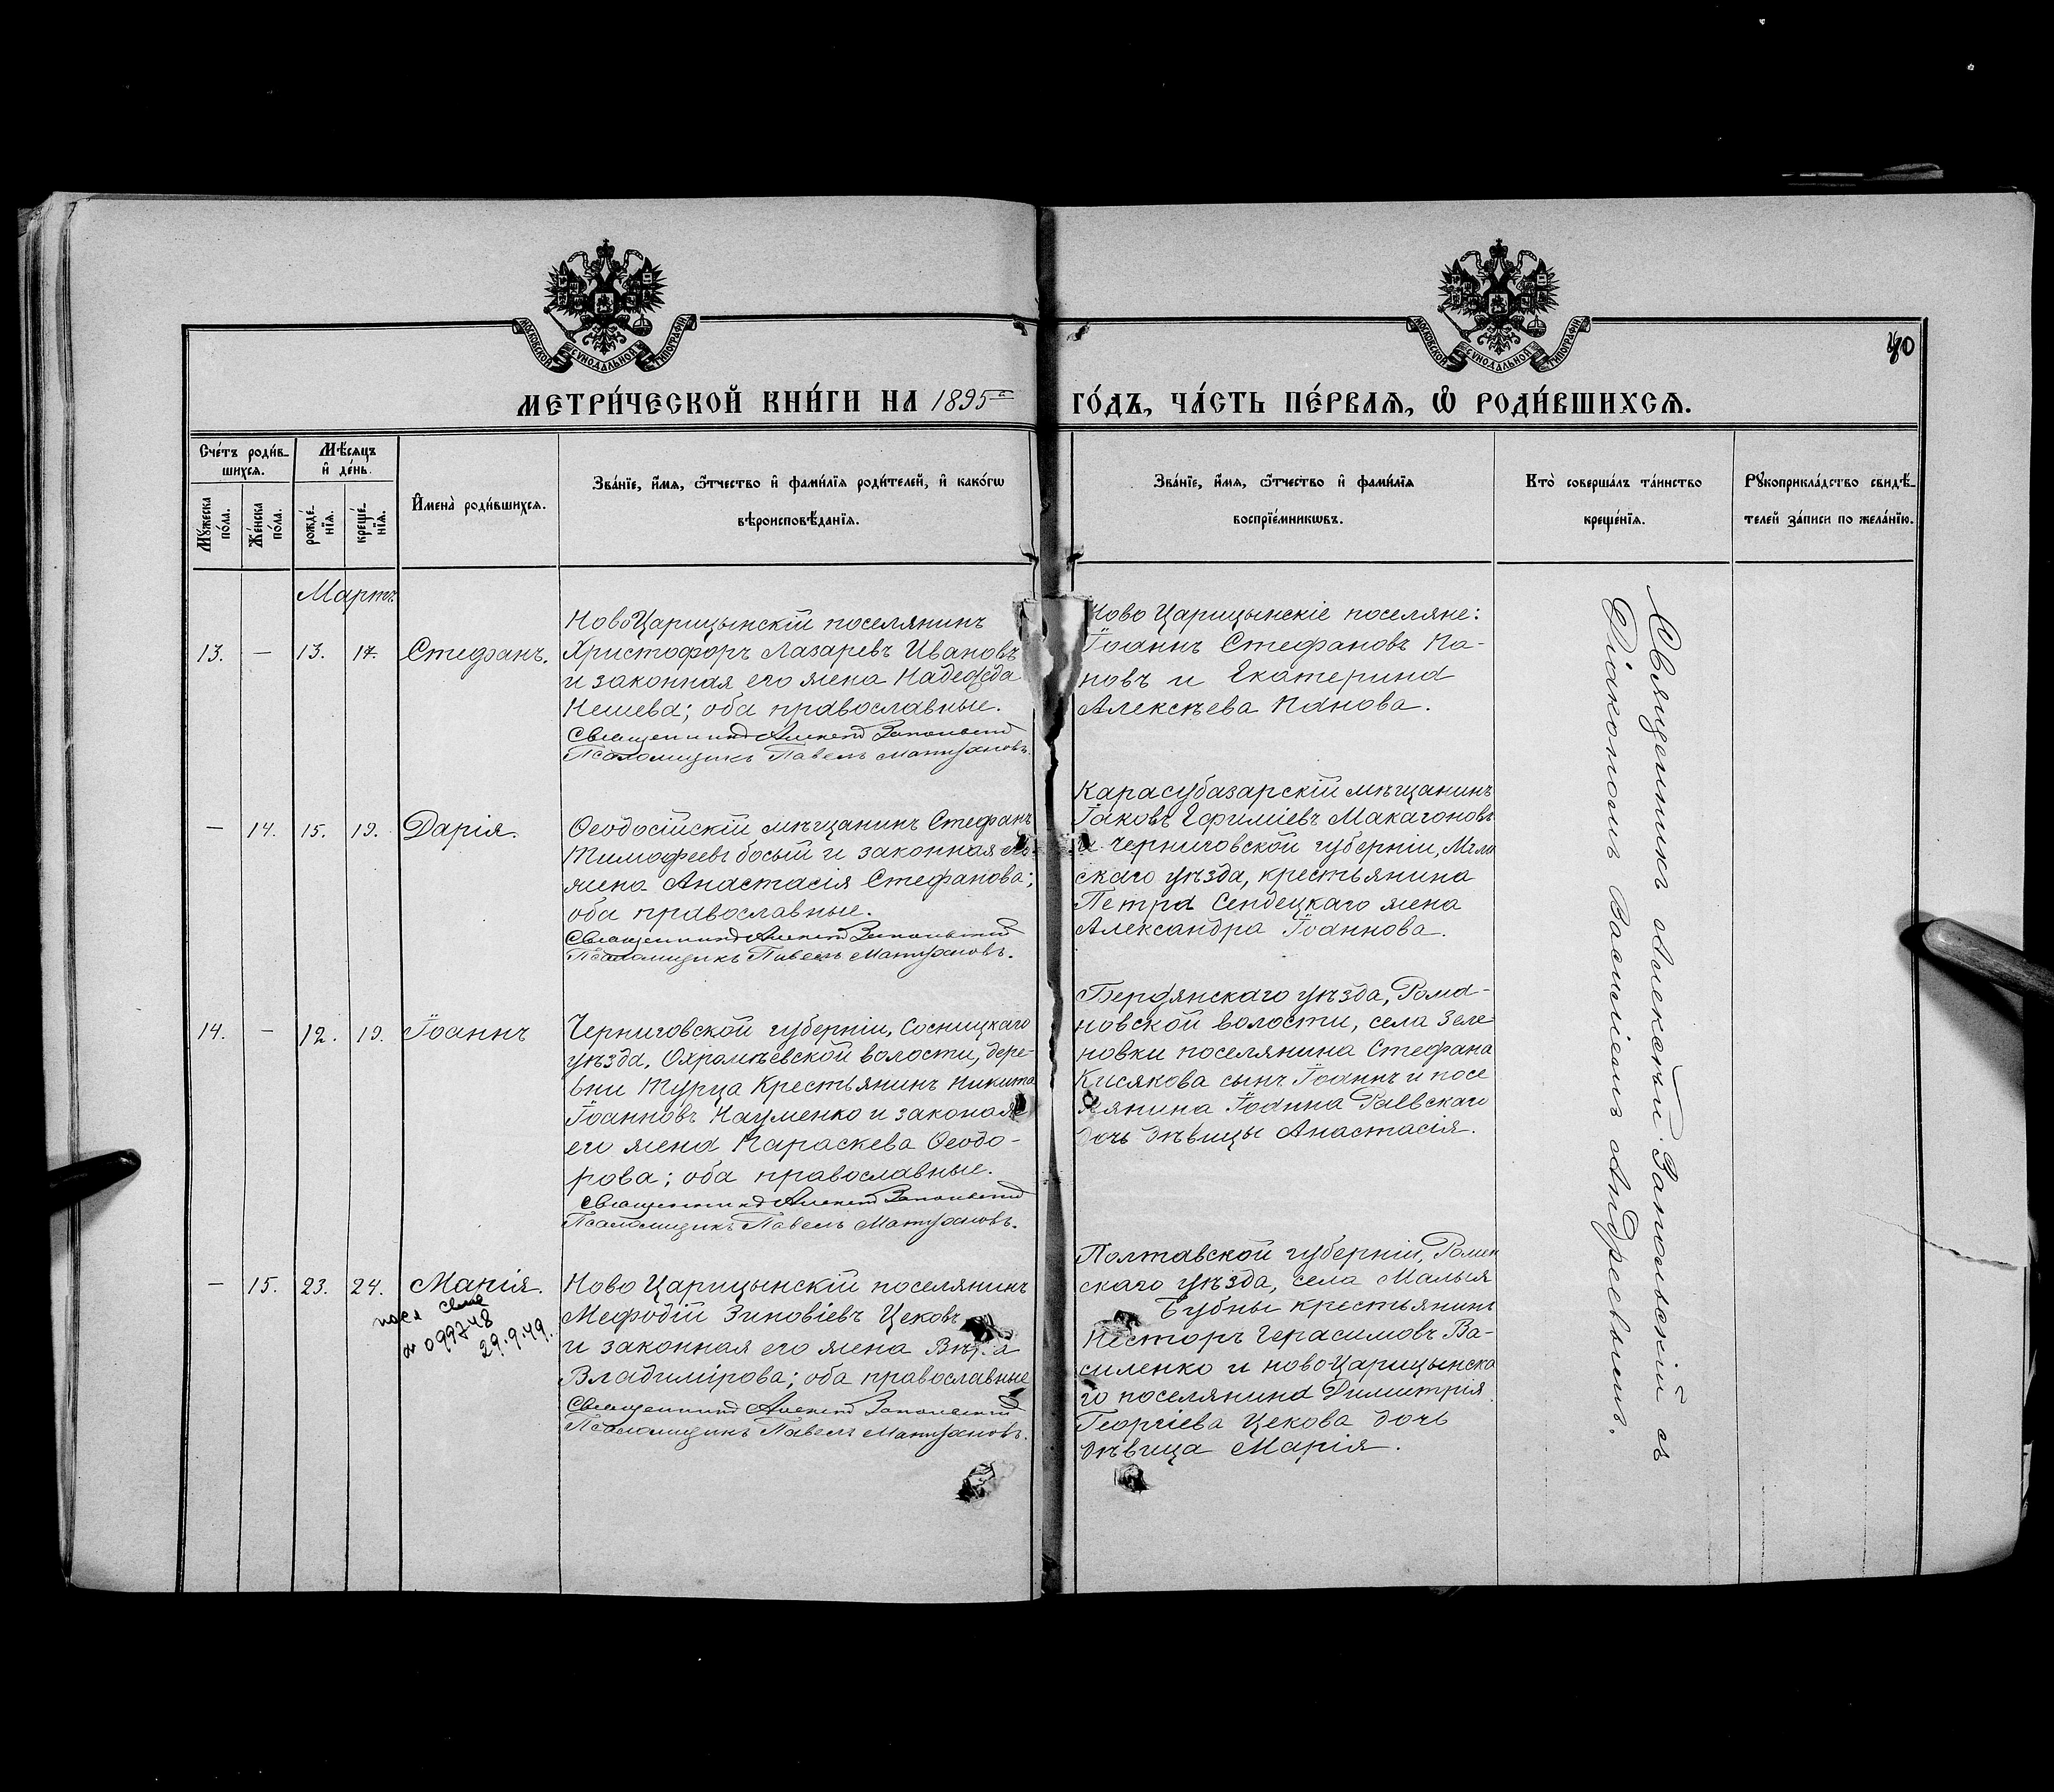 МОСКОВСКОЙ СѴНОДАЛЬНОЙ ТИПОГРАФІИ
МОСКОВСКОЙ СѴНОДАЛЬНОЙ ТИПОГРАФІИ
40
МЕТРИ́ЧЕСКОЙ КНИ́ГИ НА 1895й ГО́ДЪ, ЧА́СТЬ ПЕ́РВАѦ, Ѽ РОДИ́ВШИХСѦ.
Сче́тъ роди́в-
шихсѧ.
Мꙋжеска
по́ла.
Же́нска
по́ла.
Мѣ́сѧцъ
и҆ де́нь.
рожде́-
нїѧ.
креще́-
нїѧ.
И҆мена̀ роди́вшихсѧ.
Зва́нїе, и҆́мѧ, ѻ҆́тчество и҆ фами́лїѧ роди́телей, и҆ како́гѡ
вѣроисповѣ́данїѧ.
Зва́нїе, и҆́мѧ, ѻ҆́тчество и҆ фами́лїѧ
воспрїе́мникѡвъ.
Кто̀ соверша́лъ та́инство
креще́нїѧ.
Рꙋкоприкла́дство свидѣ́-
телей за́писи по жела́нїю.
Мартъ
13. — 13. 17. Стефанъ.
НовоЦарицынскій поселянинъ
Христофоръ Лазаревъ Ивановъ
и законная его жена Надежда
Нешева; оба православные.
Священникъ Алексѣй Запольскій
Псаломщикъ Павелъ
Ново Царицынскіе поселяне:
Іоаннъ Стефановъ Па-
новъ и Екатерина
Алексѣева Панова.
— 14. 15. 19. Дарія.
Ѳеодосійскій мѣщанинъ Стефанъ
Тимофеевъ босый и законная его
жена Анастасія Стефанова;
оба православные.
Священникъ Алексѣй Запольскій
Псаломщикъ Павелъ
Карасубазарскій мѣщанинъ
Іаковъ Ефиміевъ Макагоновъ
и Черниговской губерніи, Мгли
скаго уѣзда, крестьянина
Петра Сендецкаго жена
Александра Іоаннова.
14. — 12. 19. Іоаннъ
Черниговской губерніи, Сосницкаго
уѣзда, Охрамѣевской волости, дере-
вни Турца Крестьянинъ Никита
Іоанновъ Науменко и законая
его жена Параскева Ѳеодо-
рова; оба православные.
Священникъ Алексѣй Запольскій
Псаломщикъ Павелъ
Бердянскаго уѣзда, Рома-
новской волости, села Зеле-
новки поселянина Стефана
Кисякова сынъ Іоаннъ и посе
лянина Іоанна Раевскаго
дочь дѣвицы Анастасія.
— 15. 23. 24. Марія.
099748
29.9.49.
Ново Царицынскій поселянинъ
Мефодій Зиновіевъ Цековъ
и законная его жена Вѣра
Владимірова; оба православные
Священникъ Алексѣй Запольскій
Псаломщикъ Павелъ
Полтавской губерніи, Ромен
скаго уѣзда, села Малыя
Бубны крестьянинъ
Несторъ Герасимовъ Ва-
силенко и новоЦарицынска
го поселянина Димитрія
Георгіева Цекова дочь
дѣвица Марія.
Священникъ Алексѣй Запольскій съ
Діакономъ Василіемъ Андреевымъ.